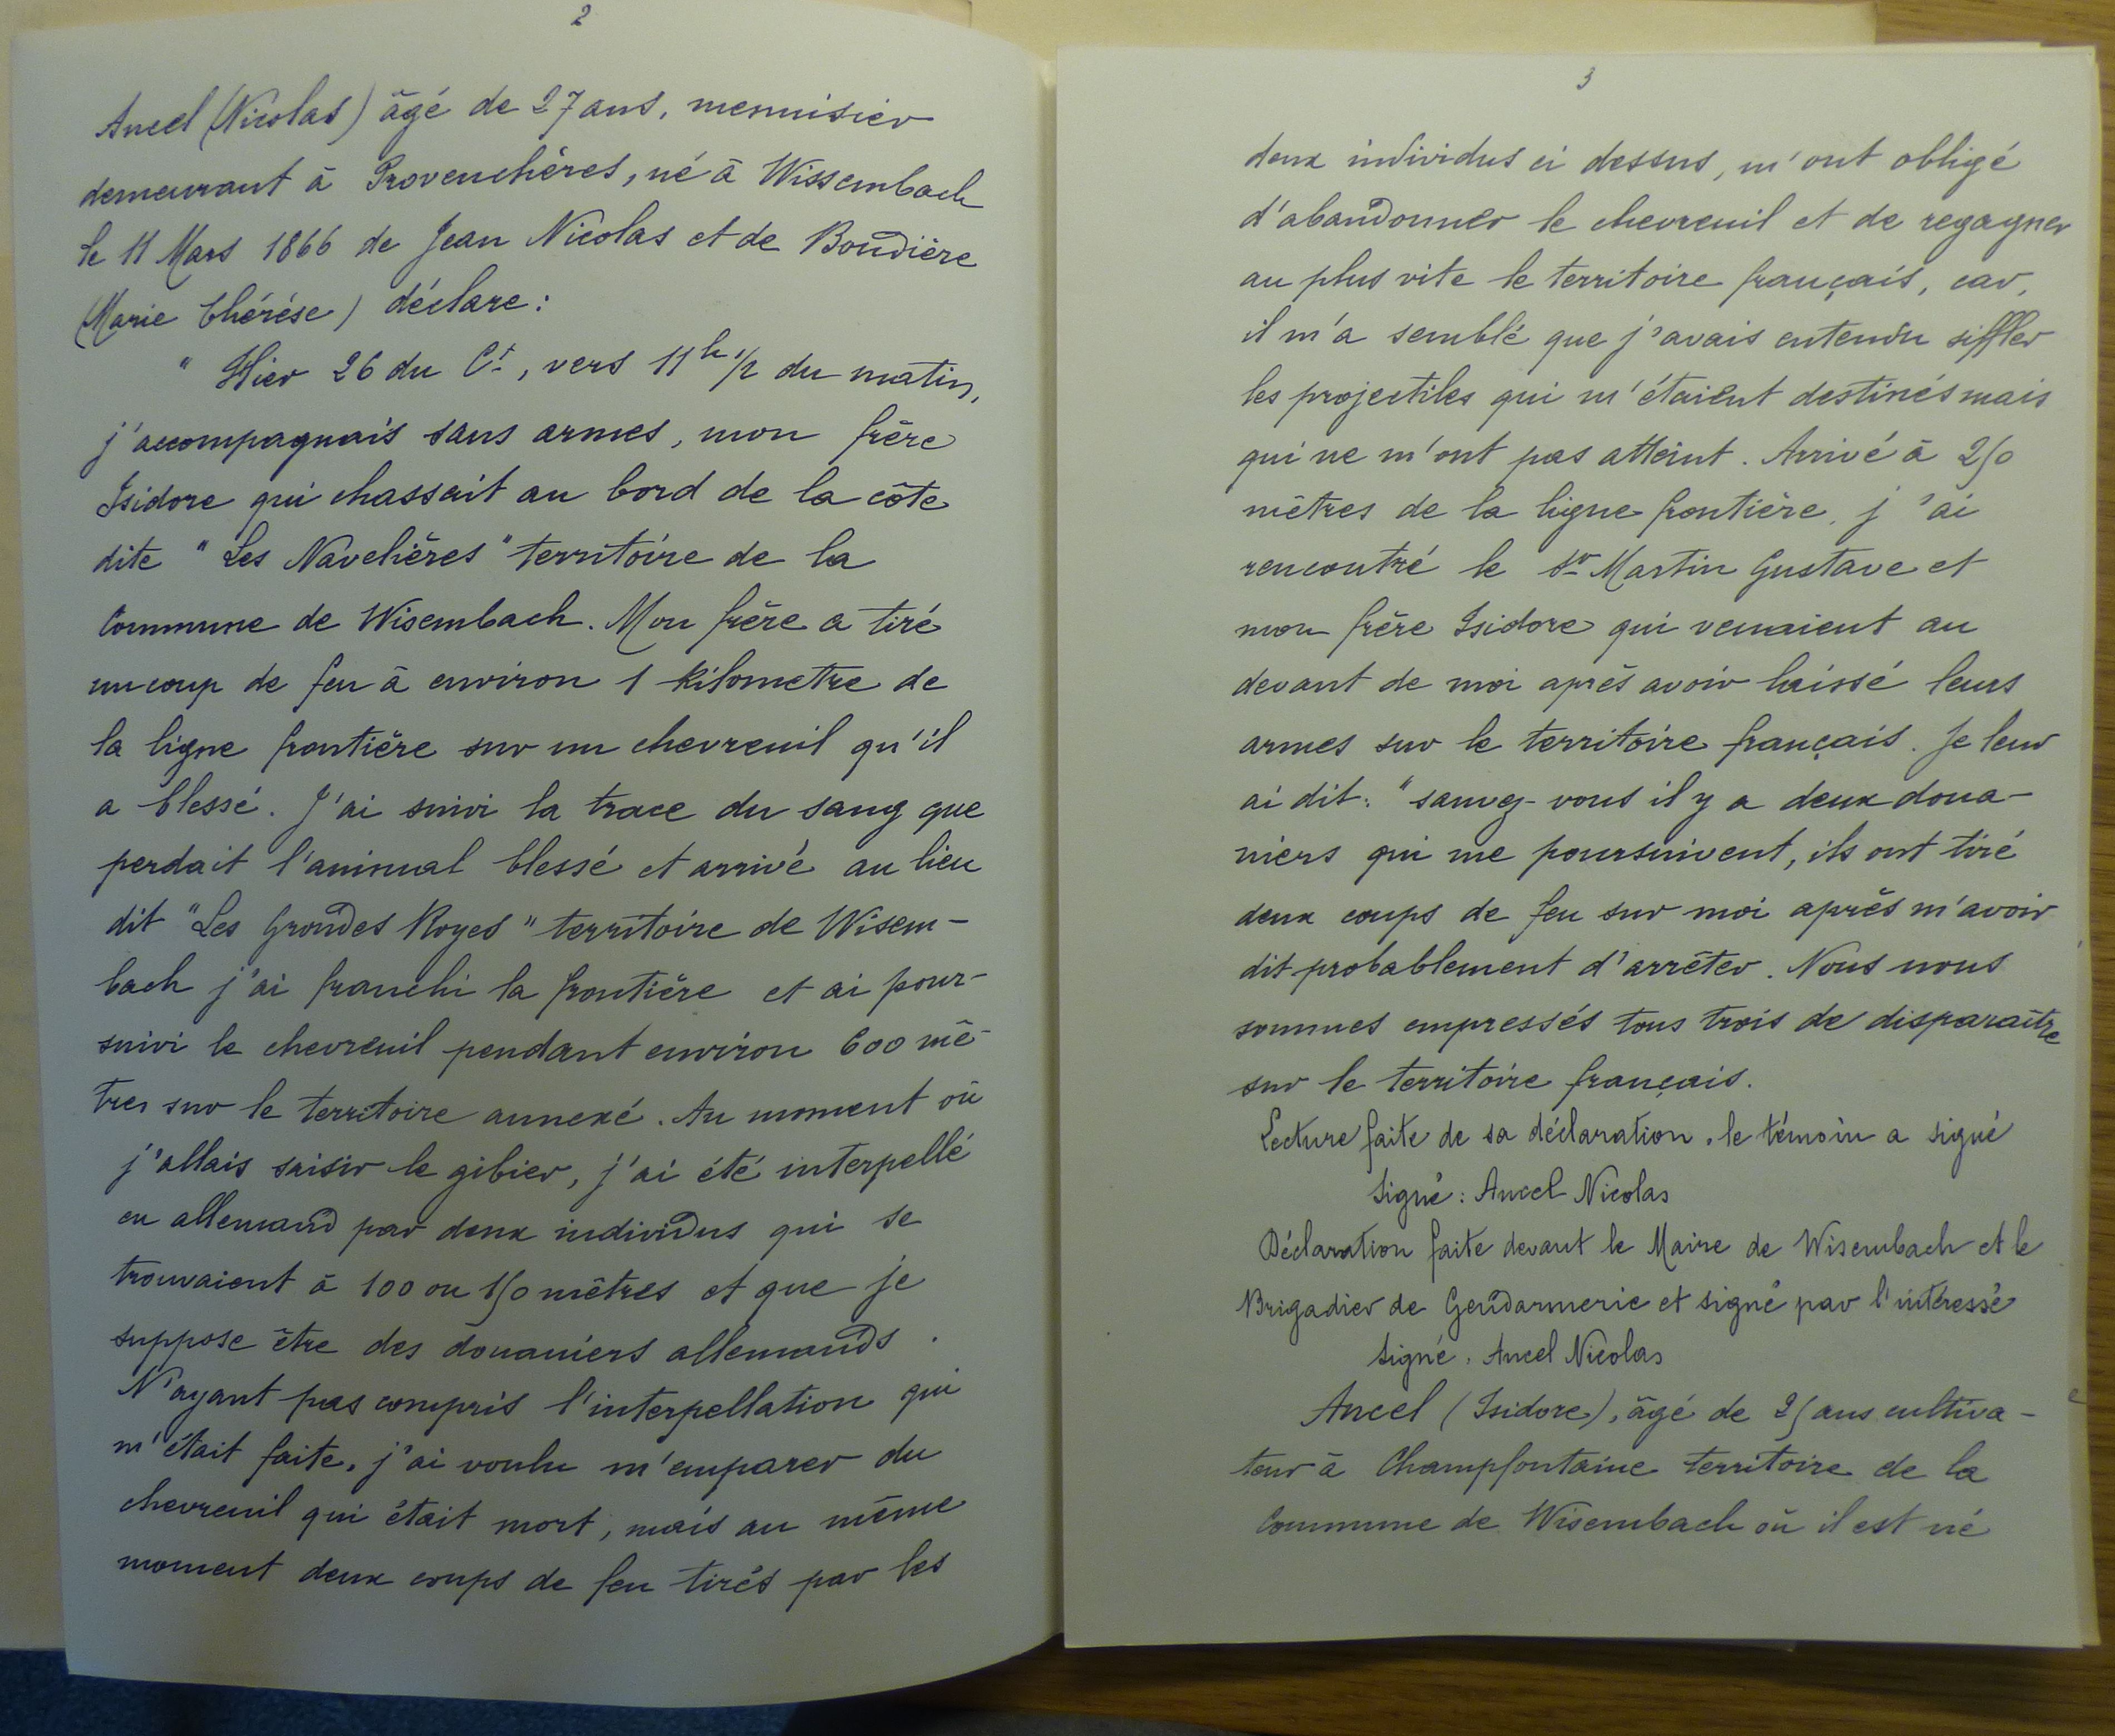 2
Ancel (Nicolas) âgé de 27 ans, menuisier
demeurant à Provenchères, né à Wissembach
le 11 Mars 1866 de Jean Nicolas et de Boudière
(Marie Thérèse) déclare :
" Hier 26 du Ct, vers 11h 1/2 du matin,
j'accompagnais sans armes, mon frère
Isidore qui chassait au bord de la côte
dite " Les Navelières " territoire de la
Commune de Wisembach. Mon frère a tiré
un coup de feu à environ 1 kilometre de
la ligne frontière sur un chevreuil qu'il
a blessé. J'ai suivi la trace du sang que
perdait l'animal blessé et arrivé au lieu
dit "Les Grandes Royes" territoire de Wisem-
bach j'ai franchi la frontière et ai pour-
suivi le chevreuil pendant environ 600 mè-
tres sur le territoire annexé. Au moment où
j'allais saisir le gibier, j'ai été interpellé
en allemand par deux individus qui se
trouvaient à 100 ou 150 mètres et que je
suppose être des douaniers allemands.
N'ayant pas compris l'interpellation qui
m'était faite, j'ai voulu m'emparer du
chevreuil qui était mort, mais au même
moment deux coups de feu tirés par les
3
deux individus ci dessus, m'ont obligé
d'abandonner le chevreuil et de regagner
au plus vite le territoire français, car,
il m'a semblé que j'avais entendu siffler
les projectiles qui m'étaient destinés mais
qui ne m'ont pas atteint. Arrivé à 250
mètres de la ligne frontière, j'ai
rencontré le Sr Martin Gustave et
mon frère Isidore qui venaient au
devant de moi après avoir laissé leurs
armes sur le territoire français. Je leur
ai dit : " sauvez-vous il y a deux doua-
niers qui me poursuivent, ils ont tiré
deux coups de feu sur moi après m'avoir
dit probablement d'arrêter. Nous nous
sommes empressés tous trois de disparaître
sur le territoire français.
Lecture faite de sa déclaration, le témoin a signé
Signé : Ancel Nicolas
Déclaration faite devant le Maire de Wisembach et le
Brigadier de Gendarmerie et signé par l'intéressé
Signé. Ancel Nicolas
Ancel (Isidore), âgé de 25 ans cultiva-
teur à Champfontaine territoire de la
Commune de Wisembach où il est né